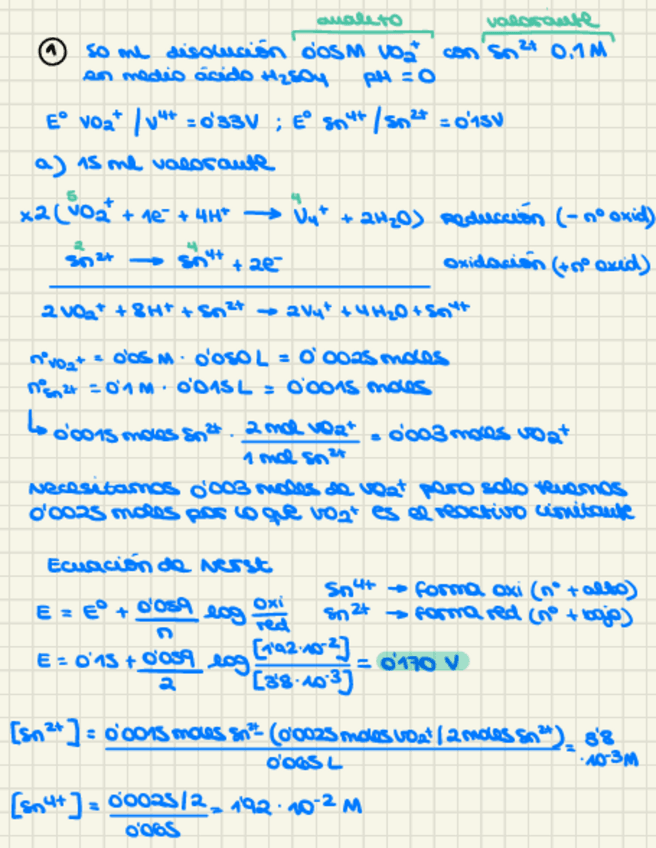 analito valorante
① 50 mL disolución 0'05M VO₂⁺ con Sn²⁺ 0,1M
en medio ácido H₂SO₄ pH = 0
E° VO₂⁺ / V⁴⁺ = 0'33V ; E° Sn⁴⁺/Sn²⁺ = 0'15V
a) 15 mL valorante
5 4
x2 ( VO₂⁺ + 1e⁻ + 4H⁺ → V₄⁺ + 2H₂O) reducción (- n° oxid)
2 4
Sn²⁺ → Sn⁴⁺ + 2e⁻ oxidación (+n° oxid)
2VO₂⁺ + 8H⁺ + Sn²⁺ → 2V₄⁺ + 4H₂O + Sn⁴⁺
n°VO₂⁺ = 0'05 M · 0'050 L = 0'0025 moles
n°Sn²⁺ = 0'1 M · 0'015 L = 0'0015 moles
↳ 0'0015 moles Sn²⁺ · 2 mol VO₂⁺ / 1 mol Sn²⁺ = 0'003 moles VO₂⁺
Necesitamos 0'003 moles de VO₂⁺ pero solo tenemos
0'0025 moles por lo que VO₂⁺ es el reactivo limitante
Ecuación de Nerst
Sn⁴⁺ → forma oxi (n° + alto)
E = E° + 0'059/n log oxi/red Sn²⁺ → forma red (n° + bajo)
E = 0'15 + 0'059/2 log [1'92·10⁻²]/[3'8·10⁻³] = 0'170 V
[Sn²⁺] = 0'0015 moles Sn²⁺ - (0'0025 moles VO₂⁺ / 2 moles Sn²⁺) / 0'065 L = 3'8 · 10⁻³ M
[Sn⁴⁺] = 0'0025/2 / 0'065 = 1'92 · 10⁻² M